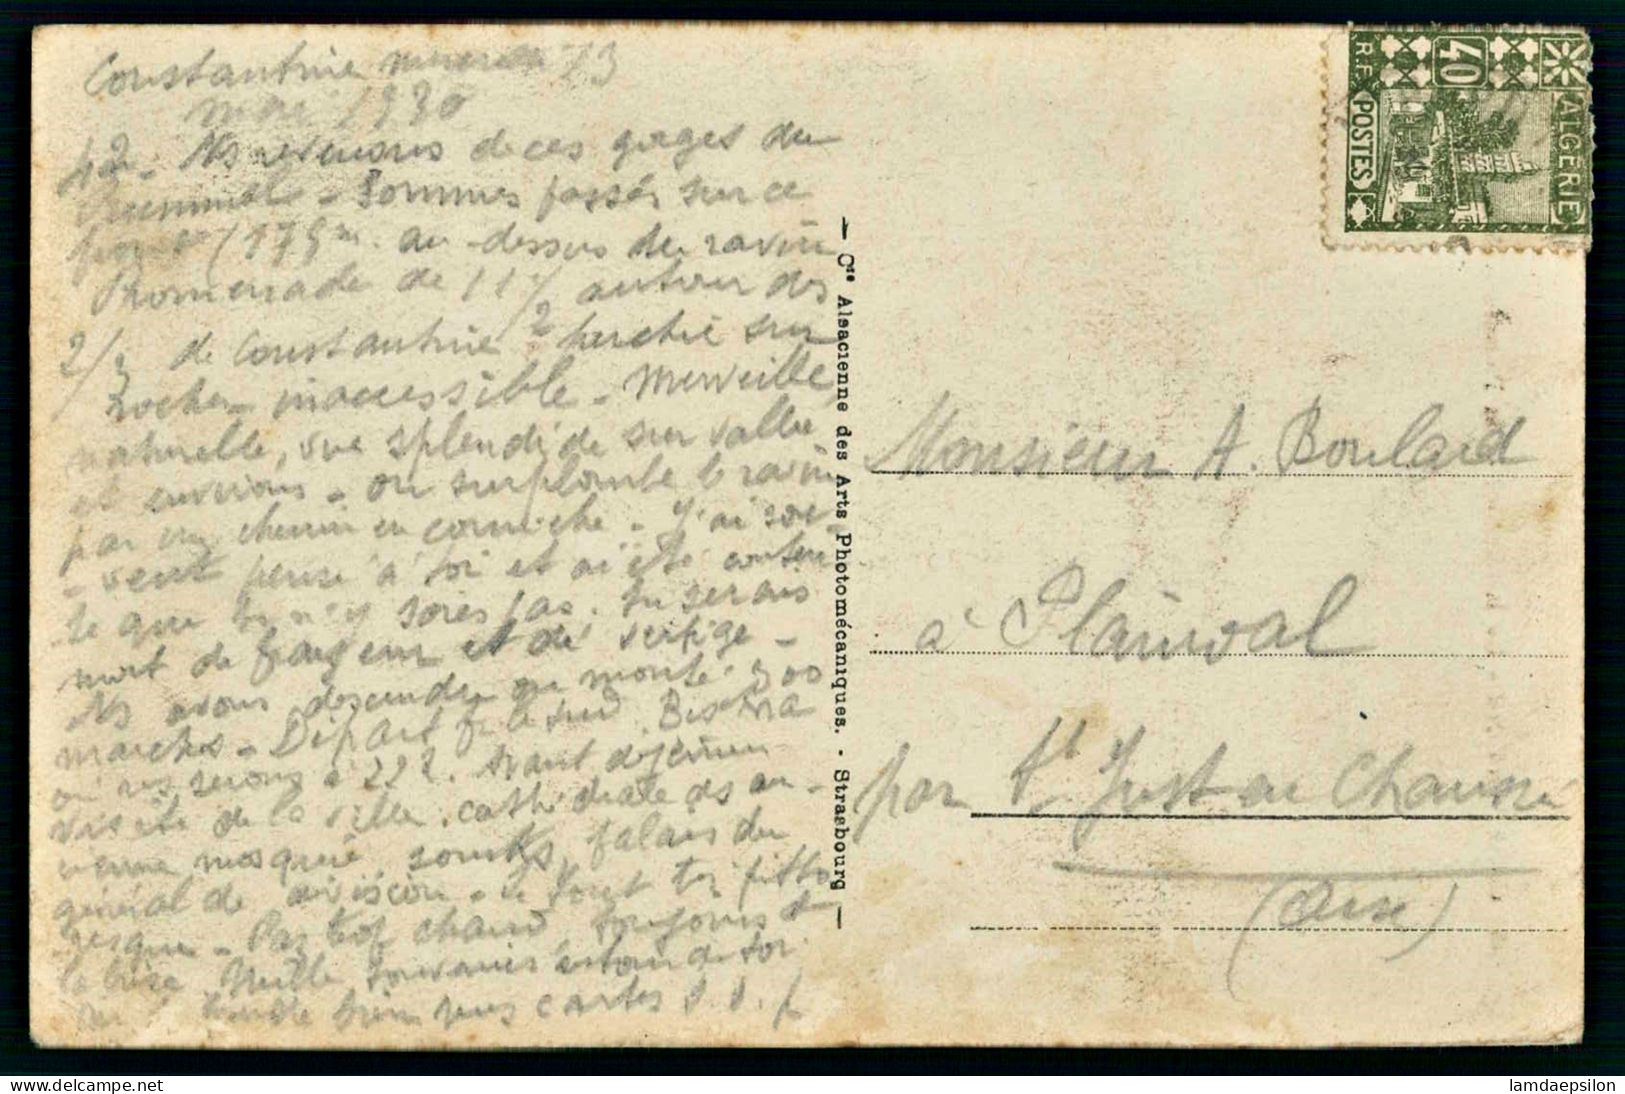 Constantine mercredi 13
mai 1930
Ns revenons de ces gorges du
Rummel - Sommes passés sur ce
pont (175m. au-dessus du ravin
Promenade de 11 1/2 autour des
2/3 de Constantine perchée sur
rocher inaccessible - Merveille
naturelle, vue splendide sur vallée
et environs - on surplombe le ravin
par un chemin en corniche - J'ai sou-
-vent pensé à toi et ai été conten
te que tu n'y sois pas. Tu serais
mort de frayeur et de vertige -
Ns avons descendu ou monté 300
marches - Départ pr le sud Biskra
où ns serons à 22h. Avant déjeuner
visite de la ville, cathédrale as an-
cienne mosquée, souks, palais du
général de division - le tout très pitto
resque - Pas trop chaud, toujours de
la brise. Mille souvenirs
bien mes cartes
ALGERIE
40
R.F. POSTES
— Cie Alsacienne des Arts Photomécaniques. - Strasbourg —
Monsieur A. Boulard
à Plainval
par St Just en Chaussée
(Oise)
lamdaepsilon